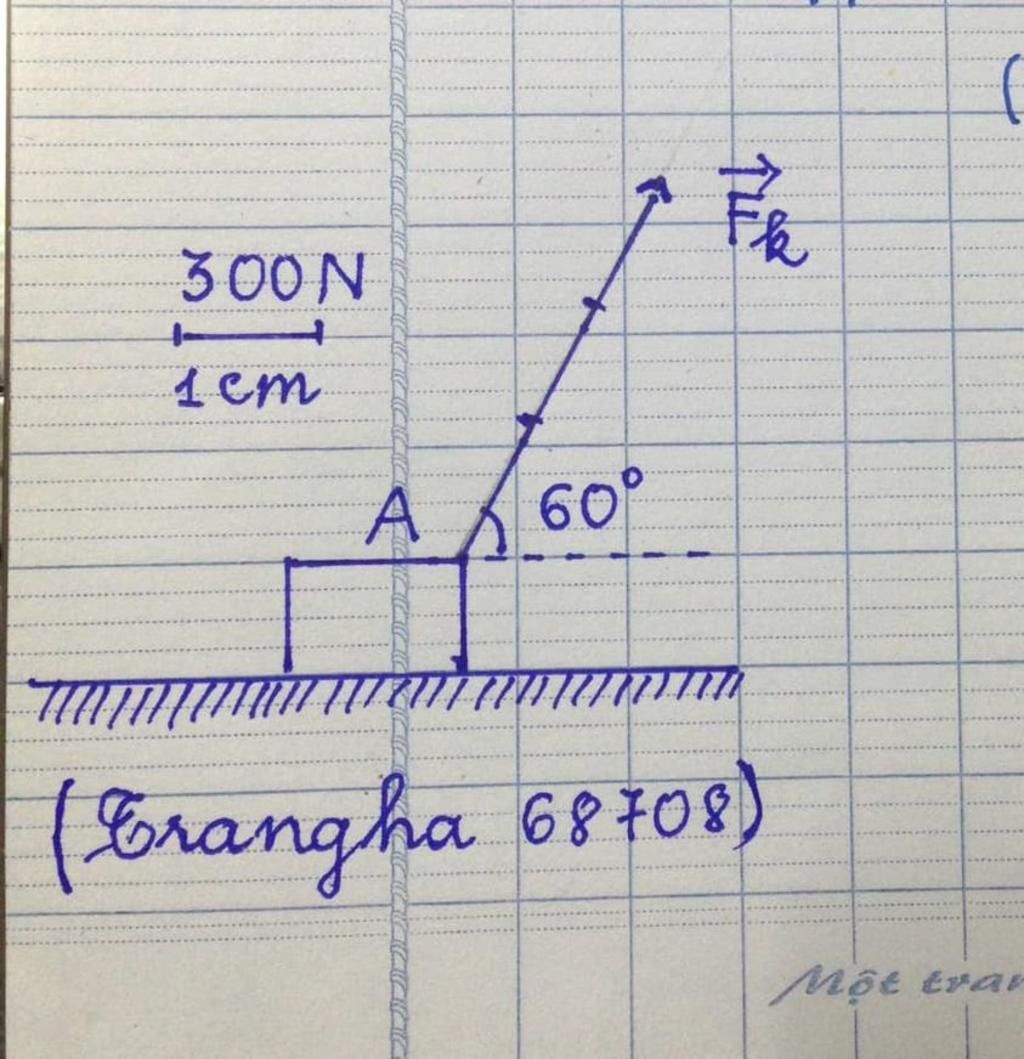 F⃗k
300N
1cm
A
60°
(Trangha 68708)
Một tran